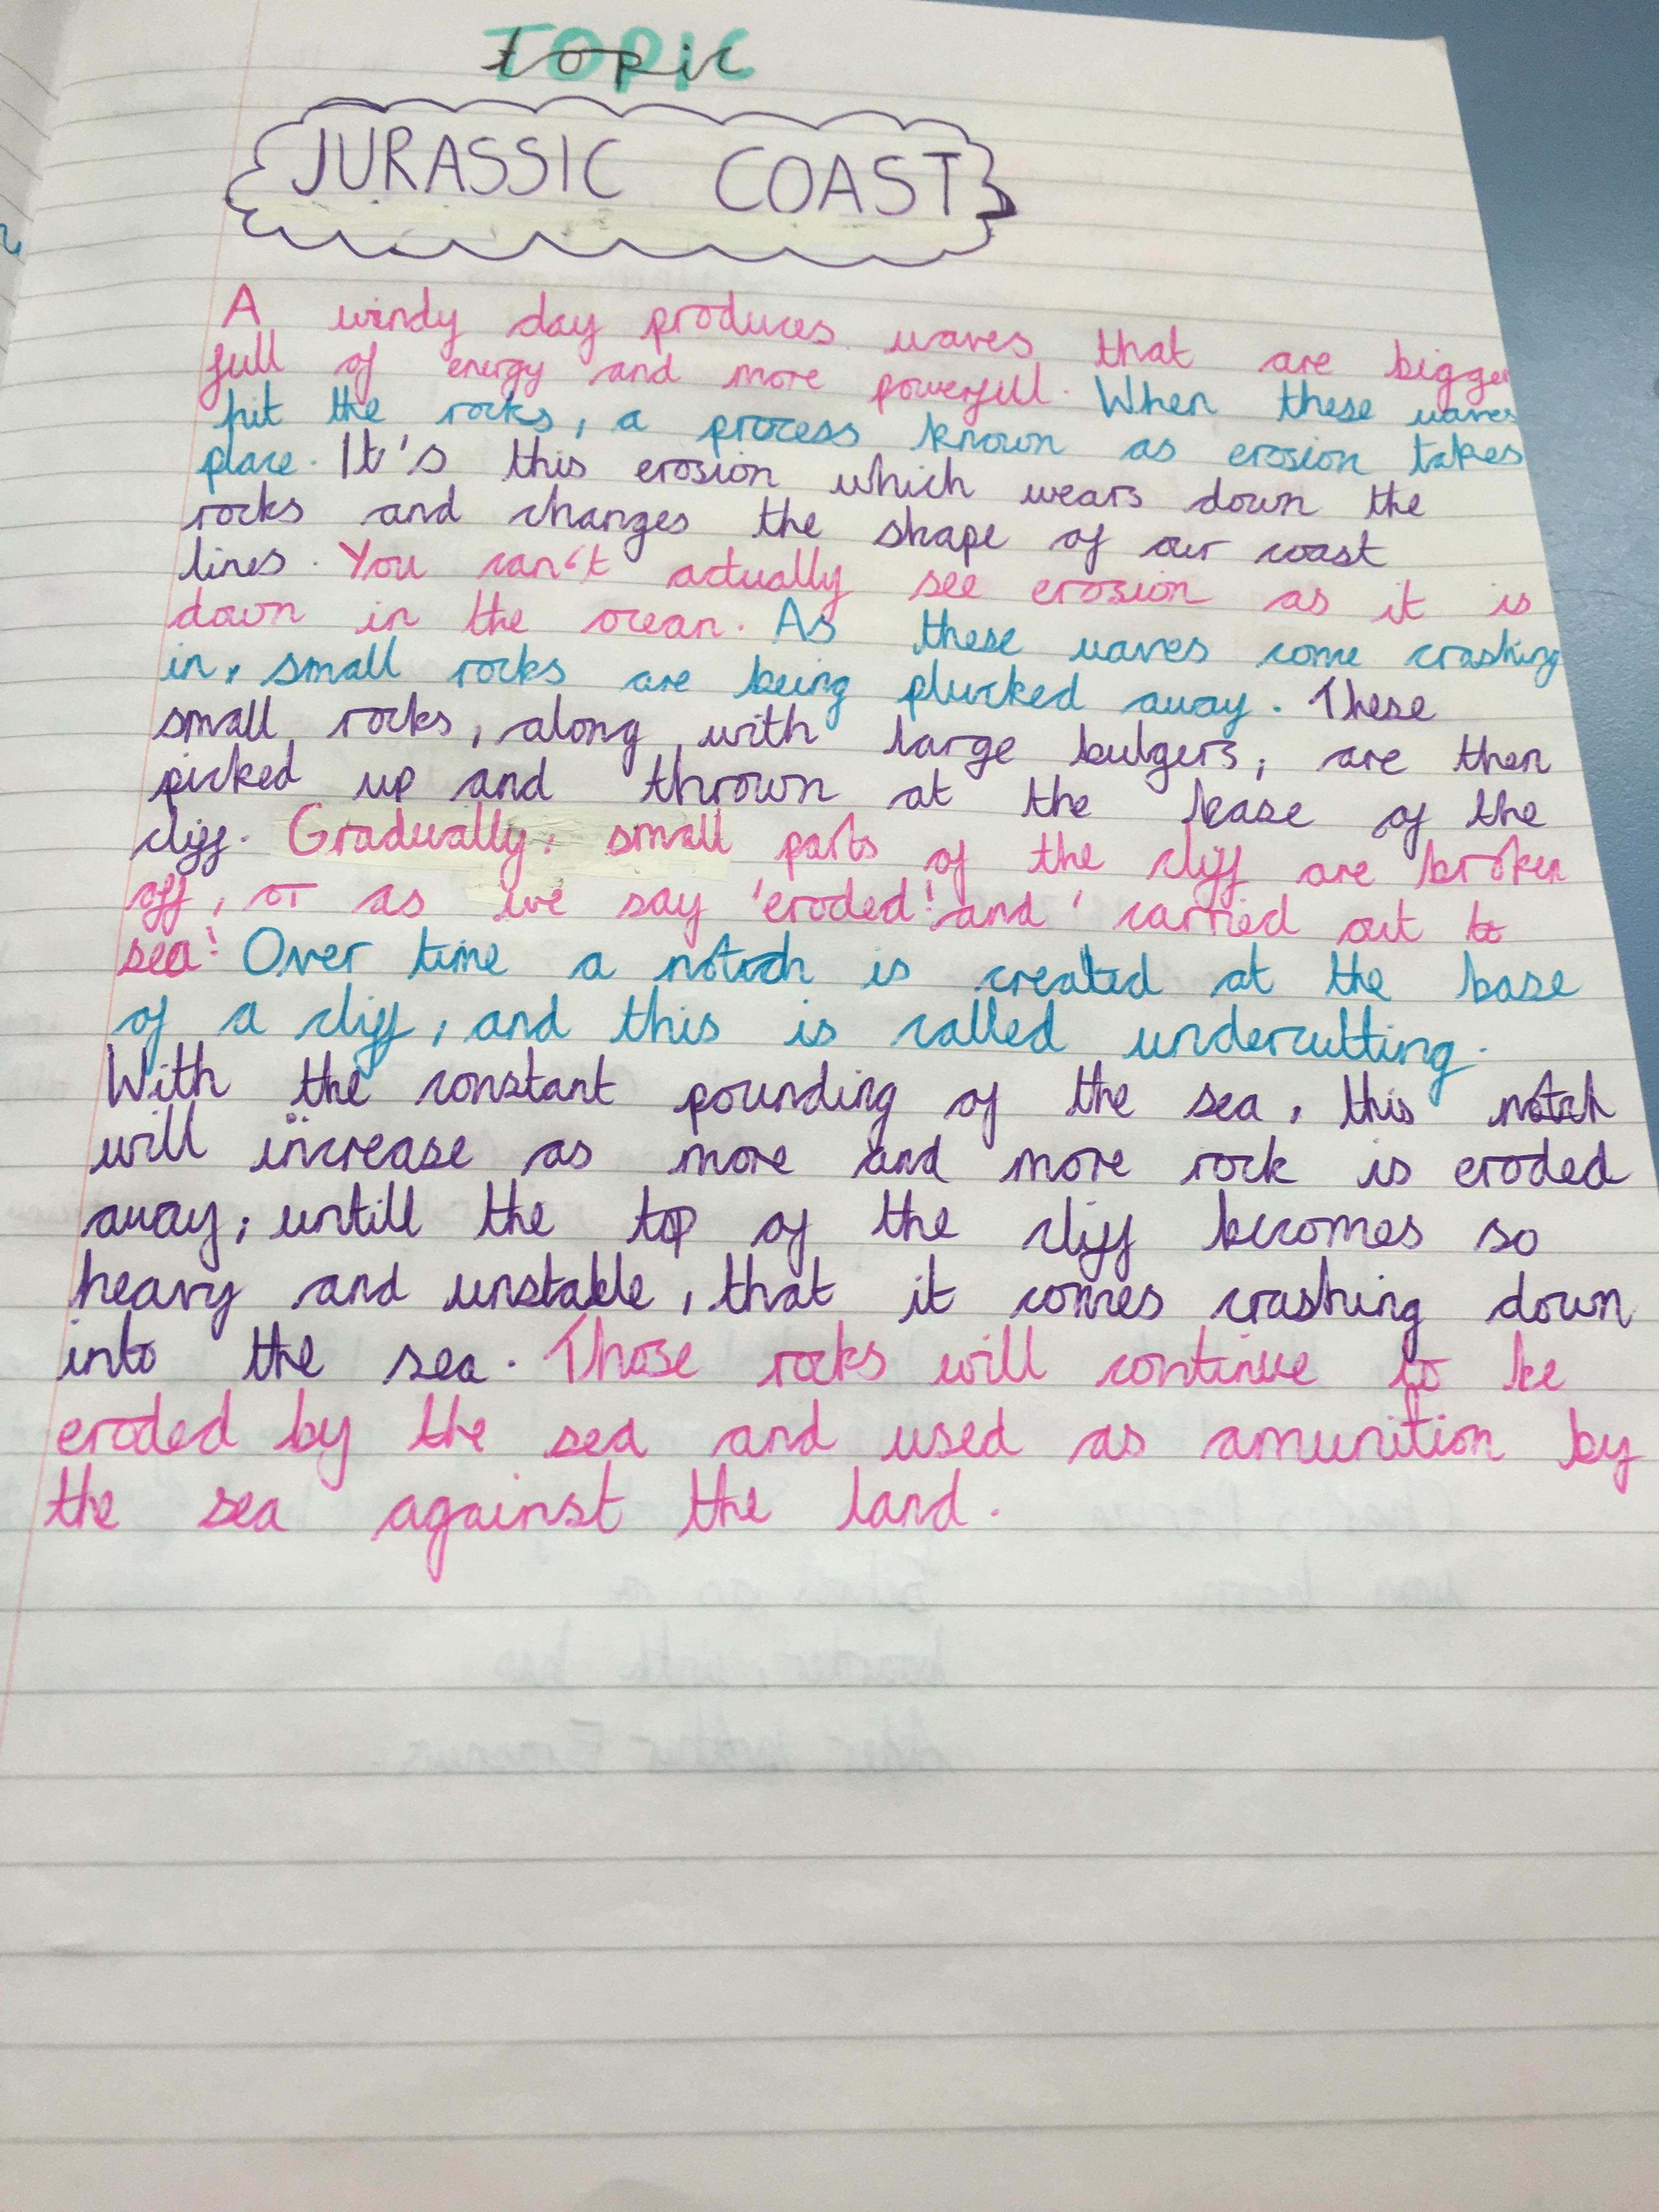 Topic
JURASSIC COAST
A windy day produces waves that are bigger
full of energy and more powerfull. When these waves
hit the rocks, a process known as erosion takes
place. It's this erosion which wears down the
rocks and changes the shape of our coast
lines. You can't actually see erosion as it is
down in the ocean. As these waves come crashing
in, small rocks are being plucked away. These
small rocks, along with large bulgers, are then
picked up and thrown at the base of the
cliff. Gradually, small parts of the cliff are broken
off, or as we say 'eroded' and 'carried out to
sea'. Over time a notch is created at the base
of a cliff, and this is called undercutting.
With the constant pounding of the sea, this notch
will increase as more and more rock is eroded
away, untill the top of the cliff becomes so
heavy and unstable, that it comes crashing down
into the sea. Those rocks will continue to be
eroded by the sea and used as amunition by
the sea against the land.